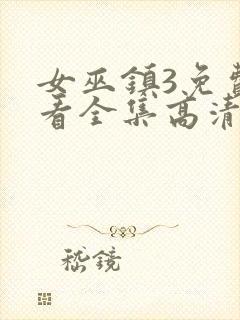 女巫鎮3免費
看全集高清
嵇鏡